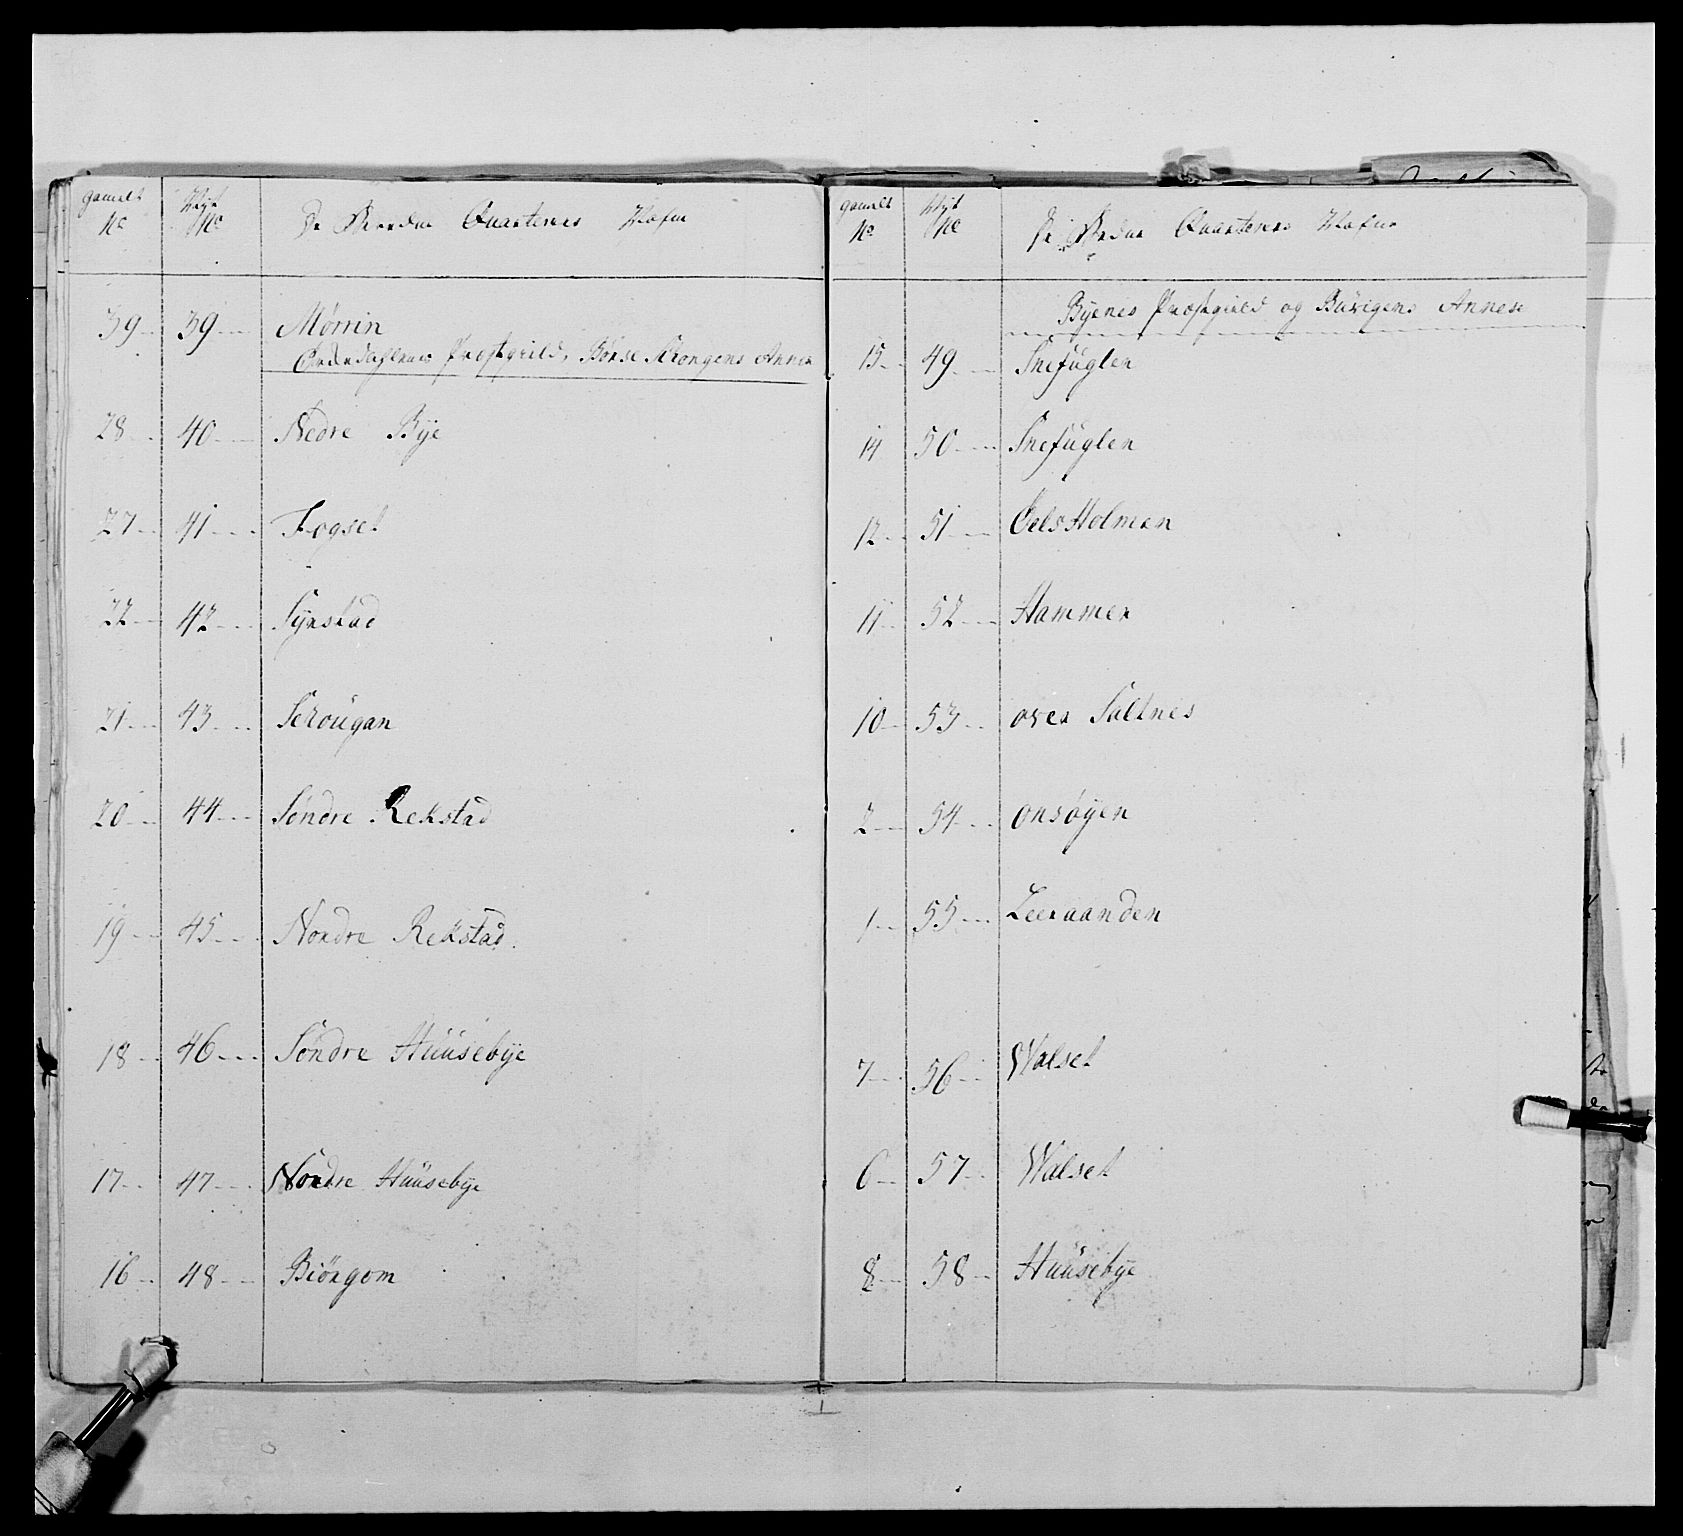 gamelt No
Nyt No
Quarterers Nafne
39 39 Mørrin
Præstegield, Børse Annex
28 40 Nedre Bye
27 41 Fogset
22 42 Syrstad
21 43 Schougan
20 44 Søndre Rekstad
19 45 Nordre Rekstad
18 46 Søndre Huusebye
17 47 Nordre Huusebye
16 48 Biörgom
gamelt No
Nyt No
Quarterers Nafne
Byenes Præstegield og Buvigens Annex
15 49 Snefuglen
14 50 Snefuglen
12 51 Oels Holmen
11 52 Hammer
10 53 over Saltnes
2 54 onsøyen
1 55 Leeraanden
7 56 Walset
6 57 Walset
8 58 Huusebye